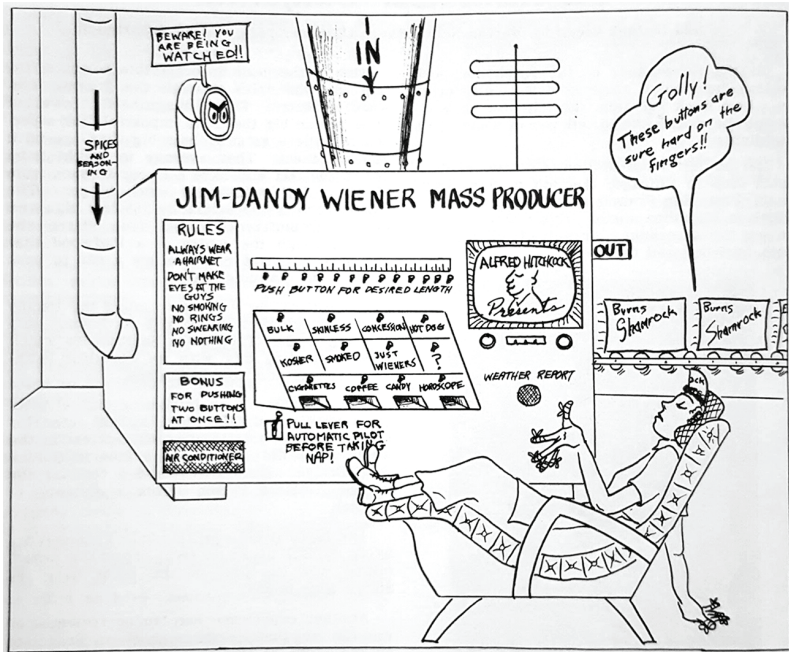 BEWARE! YOU
ARE BEING
WATCHED!!
IN
SPICES
AND
SEASON-
ING
Golly!
These buttons are
sure hard on the
fingers!!
JIM-DANDY WIENER MASS PRODUCER
RULES
ALWAYS WEAR
A HAIRNET
DON'T MAKE
EYES AT THE
GUYS
NO SMOKING
NO RINGS
NO SWEARING
NO NOTHING
BONUS
FOR PUSHING
TWO BUTTONS
AT ONCE!!
AIR CONDITIONER
PUSH BUTTON FOR DESIRED LENGTH
BULK SKINLESS CONCESSION HOT DOG
KOSHER SMOKED JUST
WIENERS ?
CIGARETTES COFFEE CANDY HOROSCOPE
PULL LEVER FOR
AUTOMATIC PILOT
BEFORE TAKING
NAP!
ALFRED HITCHCOCK
Presents
WEATHER REPORT
OUT
Burns
Shamrock
Burns
Shamrock